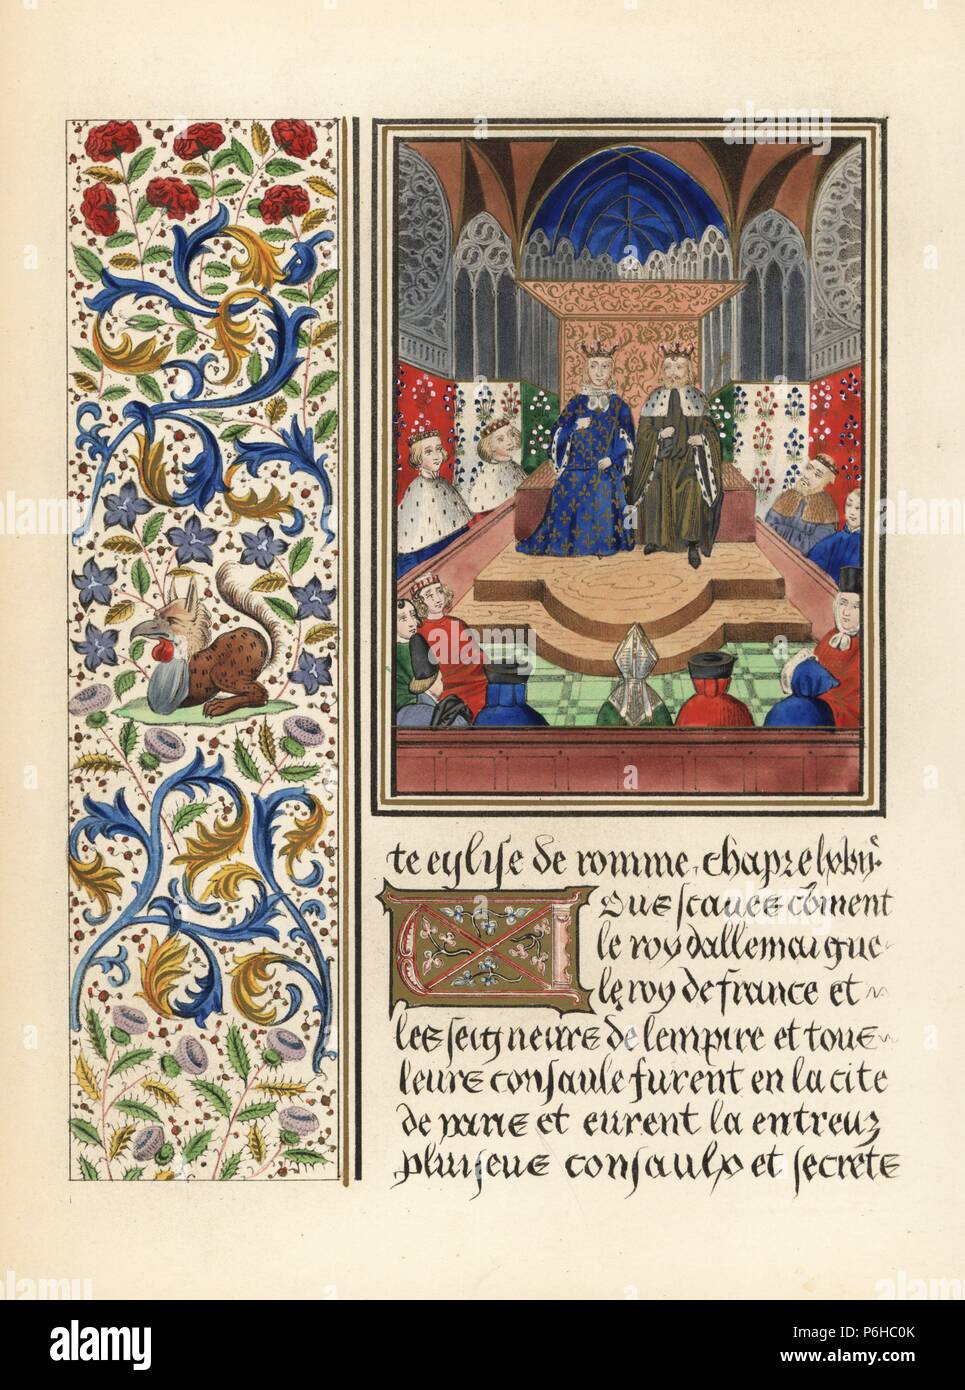 te eglise de romme, chapre lxbii.
Ous scaves cōment
le roy dallemaigue
le roy de france et
les seigneurs de lempire et tous
leurs consaulx furent en la cite
de paris et eurent la entreuz
pluiseus consaulx et secrete
alamy
Image ID: P6HC0K
www.alamy.com